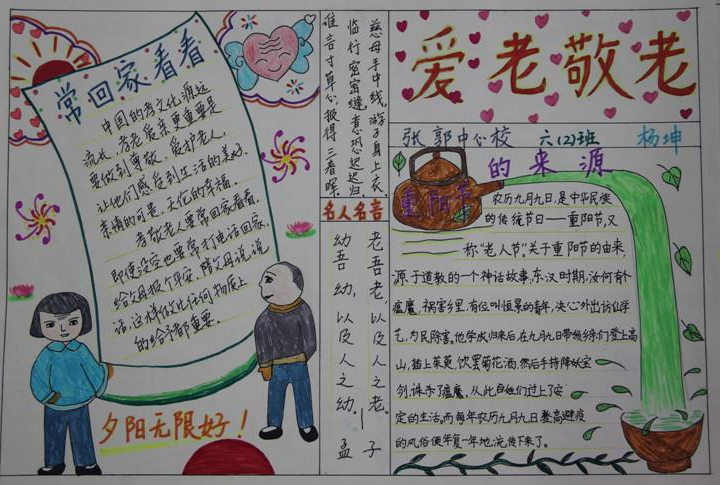 常回家看看
中国的孝文化,源远
流长,孝老爱亲更重要是
要做到尊敬、爱护老人,
让他们感受到生活的美好、
亲情的可贵、天伦的幸福。
孝敬老人要常回家看看,
即使没空也要常打电话回家,
给父母报个平安,陪父母说说
话,这样做比任何物质上
的给予都重要。
夕阳无限好!
慈母手中线,游子身上衣,
临行密密缝,意恐迟迟归,
谁言寸草心,报得三春晖。
名人名言
老吾老,以及人之老。
幼吾幼,以及人之幼。
—孟子
爱老敬老
张郭中心校 六(2)班 杨坤
重阳节的来源
农历九月九日,是中华民族
的传统节日——重阳节,又
称“老人节”。关于重阳节的由来,
源于道教的一个神话故事:东汉时期,汝河有个
瘟魔,祸害乡里,有位叫恒景的青年,决心外出访仙学
艺,为民除害。他学成归来后,在九月九日带领乡亲们登上高
山,插上茱萸,饮罢菊花酒,然后手持降妖宝
剑,诛杀了瘟魔,从此百姓们过上了安
定的生活,而每年农历九月九日登高避疫
的风俗便年复一年地流传下来了。